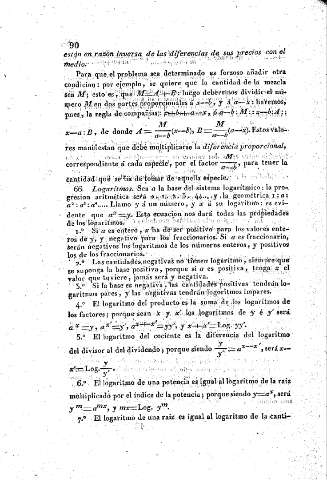 90
están en razón inversa de las diferencias de sus precios con el
medio.
Para que el problema sea determinado es forzoso añadir otra
condicion: por ejemplo, se quiere que la cantidad de la mezcla
sea M; esto es, que M=A+B: luego deberemos dividir el nú-
mero M en dos partes proporcionales á x—b, y á a—x: haremos,
pues, la regla de compañías: x—b+a—x, ó a—b: M:: x—b: A;:
a—x: B, de donde A= M/a—b (x—b), B= M/a—b (a—x). Estos valo-
res manifiestan que debe multiplicarse la diferencia proporcional,
correspondiente á cada especie, por el factor M/a—b, para tener la
cantidad que se ha de tomar de aquella especie.
66. Logaritmos. Sea a la base del sistema logarítmico: la pro-
gresion aritmética será
y la geométrica 1: a:
a²: a³: a⁴.... Llamo y á un número, y x á su logaritmo: es evi-
dente que aˣ=y. Esta ecuacion nos dará todas las propiedades
de los logaritmos.
1.° Si a es entero, x ha de ser positivo para los valores ente-
ros de y, y negativo para los fraccionarios. Si a es fraccionario,
serán negativos los logaritmos de los números enteros, y positivos
los de los fraccionarios.
2.° Las cantidades negativas no tienen logaritmo, siempre que
se suponga la base positiva, porque si a es positiva, tenga x el
valor que tuviere, jamás será y negativa.
3.° Si la base es negativa, las cantidades positivas tendrán lo-
garitmos pares, y las negativas tendrán logaritmos impares.
4.° El logaritmo del producto es la suma de los logaritmos de
los factores; porque sean x y x' los logaritmos de y é y' será
aˣ=y, aˣ'=y', aˣ⁺ˣ'=yy', y x+x'=Log. yy'.
5.° El logaritmo del cociente es la diferencia del logaritmo
del divisor al del dividendo; porque siendo y/y'=aˣ⁻ˣ', será x—
x'=Log. y/y'.
6.° El logaritmo de una potencia es igual al logaritmo de la raiz
multiplicado por el índice de la potencia; porque siendo y=aˣ, será
yᵐ=aᵐˣ, y mx=Log. yᵐ.
7.° El logaritmo de una raiz es igual al logaritmo de la canti-